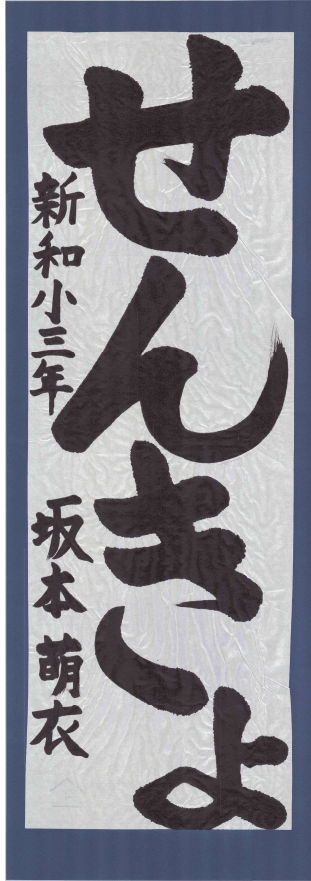 せんきよ
新和小三年 坂本萌衣